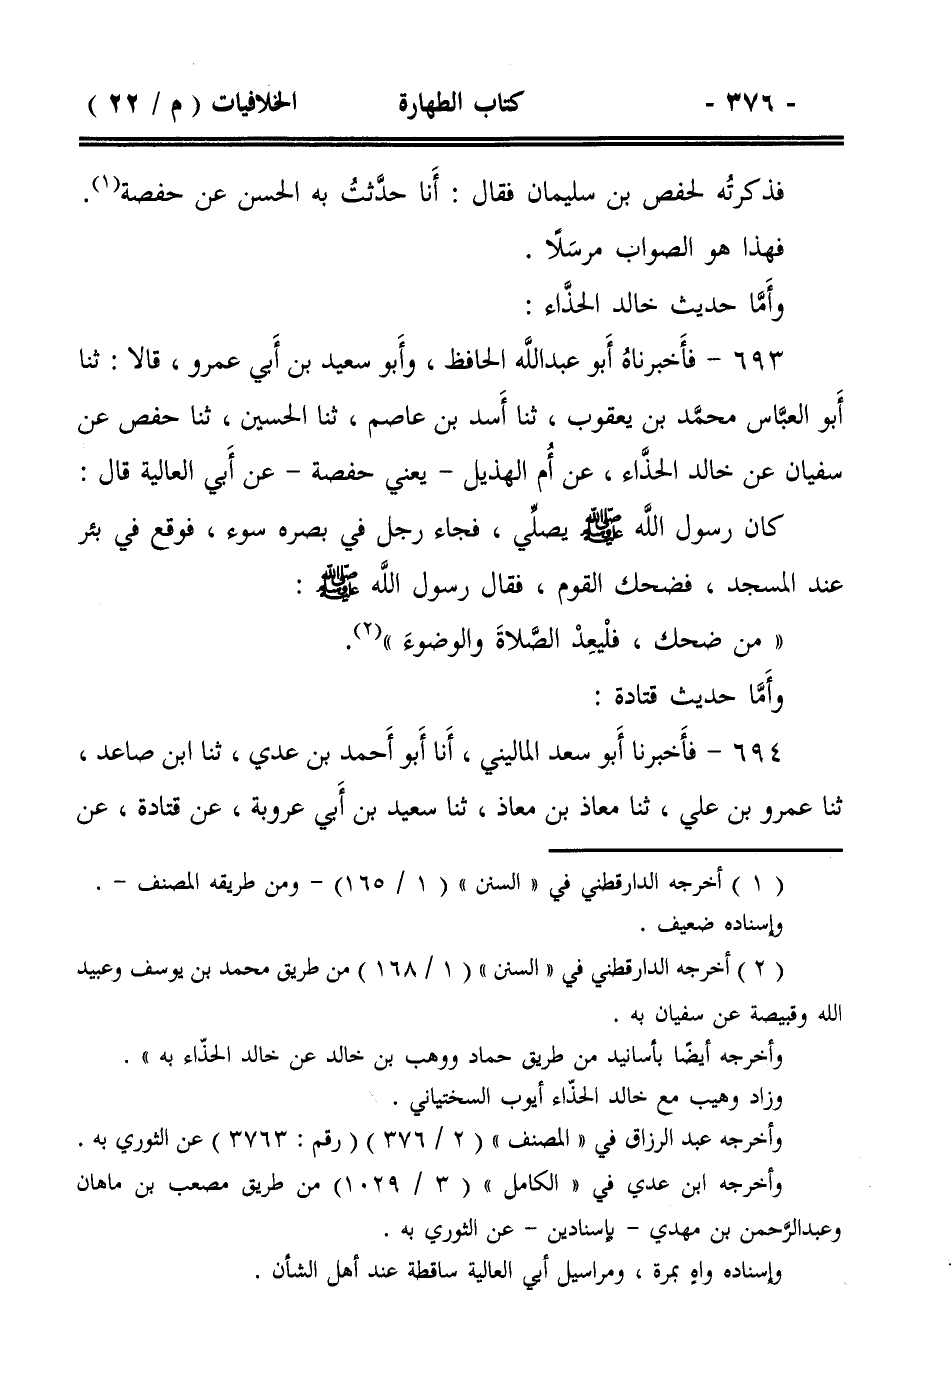 - ٣٧٦ - كتاب الطهارة الخلافيات ( م / ٢٢ )
فذكرتُه لحفص بن سليمان فقال : أَنا حدَّثتُ به الحسن عن حفصة(١).
فهذا هو الصواب مرسَلًا .
وأَمَّا حديث خالد الحذَّاء :
٦٩٣ - فأَخبرناهُ أَبو عبدالله الحافظ ، وأَبو سعيد بن أَبي عمرو ، قالا : ثنا
أَبو العبَّاس محمَّد بن يعقوب ، ثنا أَسد بن عاصم ، ثنا الحسين ، ثنا حفص عن
سفيان عن خالد الحذَّاء ، عن أُم الهذيل - يعني حفصة - عن أَبي العالية قال :
كان رسول اللَّه ﷺ يصلِّي ، فجاء رجل في بصره سوء ، فوقع في بئر
عند المسجد ، فضحك القوم ، فقال رسول اللَّه ﷺ :
« من ضحك ، فلْيعِدْ الصَّلاةَ والوضوءَ »(٢).
وأَمَّا حديث قتادة :
٦٩٤ - فأَخبرنا أَبو سعد الماليني ، أَنا أَبو أَحمد بن عدي ، ثنا ابن صاعد ،
ثنا عمرو بن علي ، ثنا معاذ بن معاذ ، ثنا سعيد بن أَبي عروبة ، عن قتادة ، عن
( ١ ) أخرجه الدارقطني في « السنن » ( ١ / ١٦٥) - ومن طريقه المصنف - .
وإسناده ضعيف .
( ٢ ) أخرجه الدارقطني في « السنن » ( ١ / ١٦٨ ) من طريق محمد بن يوسف وعبيد
الله وقبيصة عن سفيان به .
وأخرجه أيضًا بأسانيد من طريق حماد ووهب بن خالد عن خالد الحذّاء به » .
وزاد وهيب مع خالد الحذّاء أيوب السختياني .
وأخرجه عبد الرزاق في « المصنف » ( ٢ / ٣٧٦ ) ( رقم : ٣٧٦٣ ) عن الثوري به .
وأخرجه ابن عدي في « الكامل » ( ٣ / ١٠٢٩) من طريق مصعب بن ماهان
وعبدالرَّحمن بن مهدي - بإسنادين - عن الثوري به .
وإسناده واهٍ بمرة ، ومراسيل أبي العالية ساقطة عند أهل الشأن .